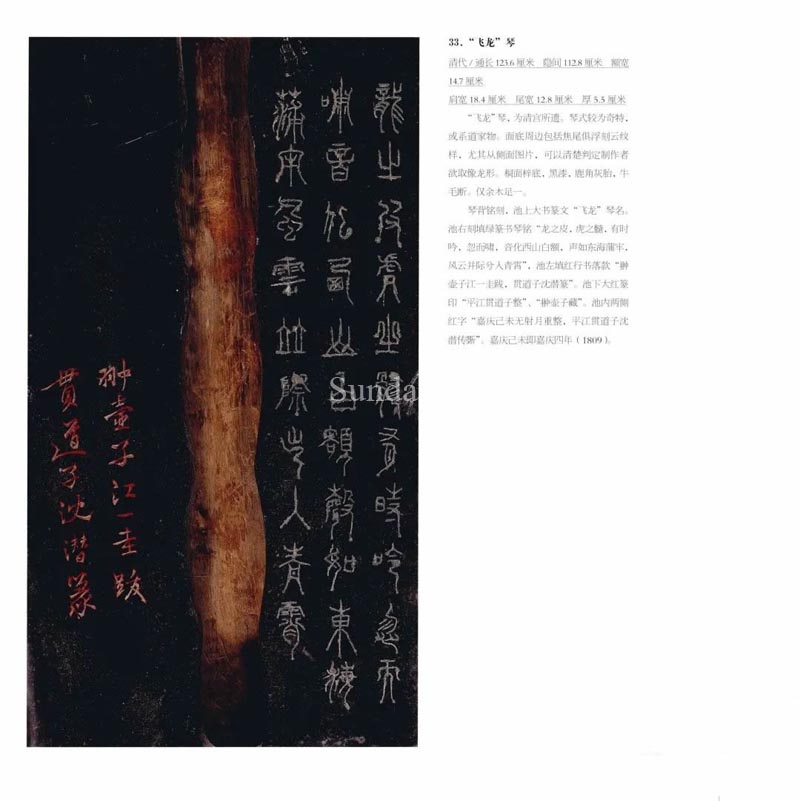 龍之皮虎之髓有時吟忽而
嘯音化西山白額聲如東海
蒲牢風雲並際兮人青霄
翀壺子江一圭跋
貫道子沈潛篆
Sunda
33.“飞龙”琴
清代 / 通长 123.6 厘米　隐间 112.8 厘米　额宽
14.7 厘米
肩宽 18.4 厘米　尾宽 12.8 厘米　厚 5.5 厘米
“飞龙”琴，为清宫所遗。琴式较为奇特，
成系道家物。面底周边包括焦尾俱浮刻云纹
样，尤其从侧面图片，可以清楚判定制作者
欲取像龙形。桐面梓底，黑漆，鹿角灰胎，牛
毛断。仅余木足一。
琴背铭刻，池上大书篆文“飞龙”琴名。
池右刻填绿篆书琴铭“龙之皮，虎之髓，有时
吟，忽而啸，音化西山白额，声如东海蒲牢，
风云并际兮人青霄”，池左填红行书落款“翀
壶子江一圭跋，贯道子沈潜篆”。池下大红篆
印“平江贯道子整”、“翀壶子藏”。池内两侧
红字“嘉庆己未无射月重整，平江贯道子沈
潜传斲”。嘉庆己未即嘉庆四年（1809）。